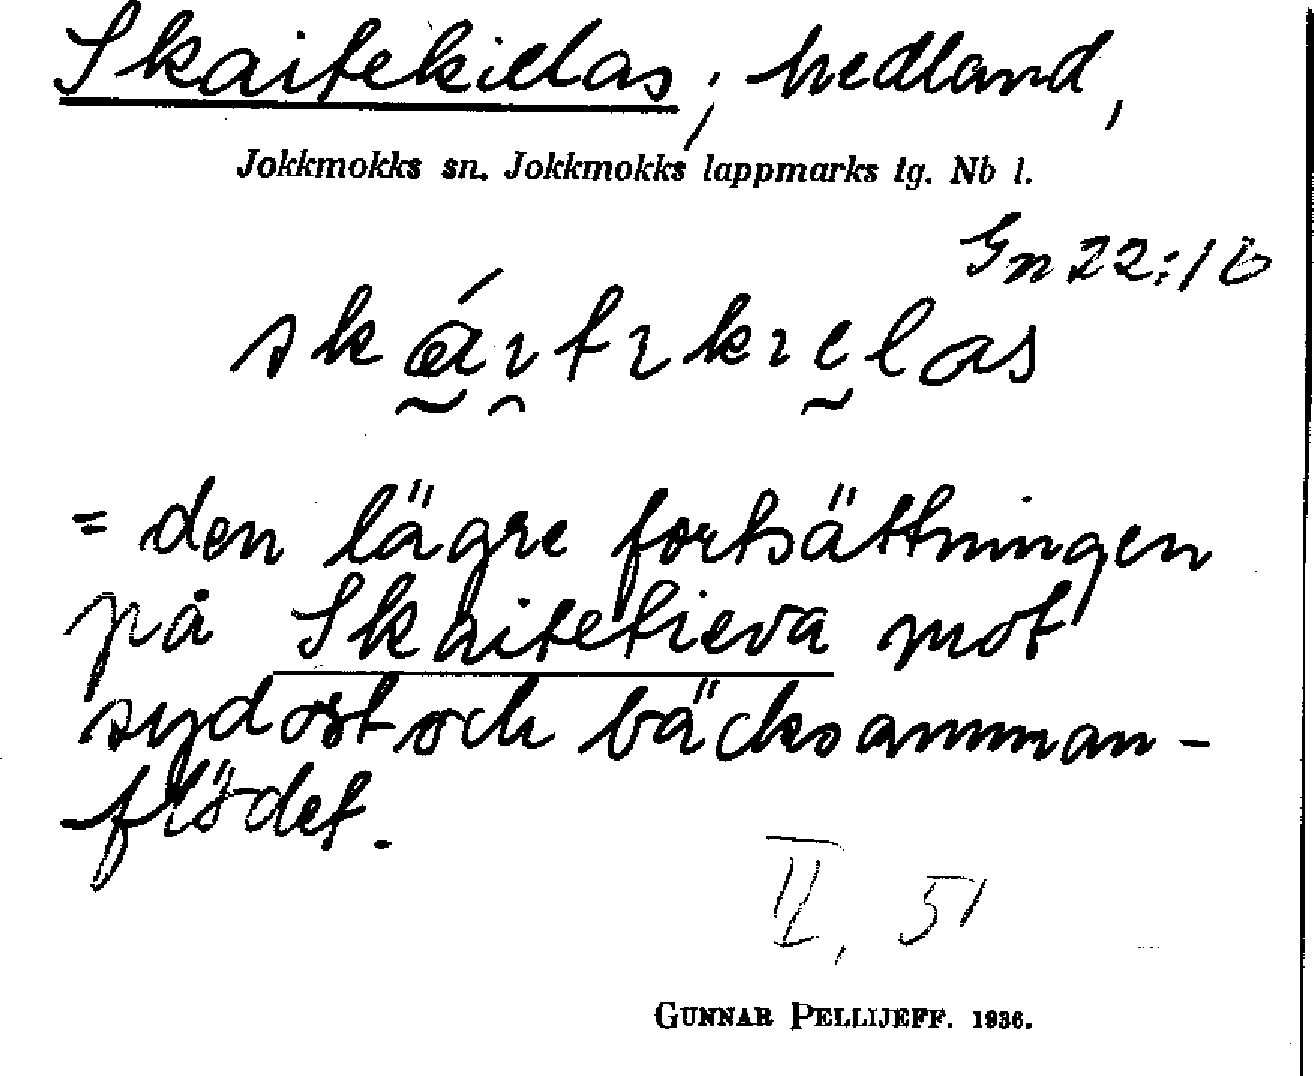 Skaitekielas; hedland,
Jokkmokks sn. Jokkmokks lappmarks tg. Nb l.
Gn 22:16
skáitikielas
= den lägre fortsättningen
på Skaitetieva mot
sydost och bäcksamman-
flödet.
II, 51
GUNNAR PELLIJEFF. 1936.